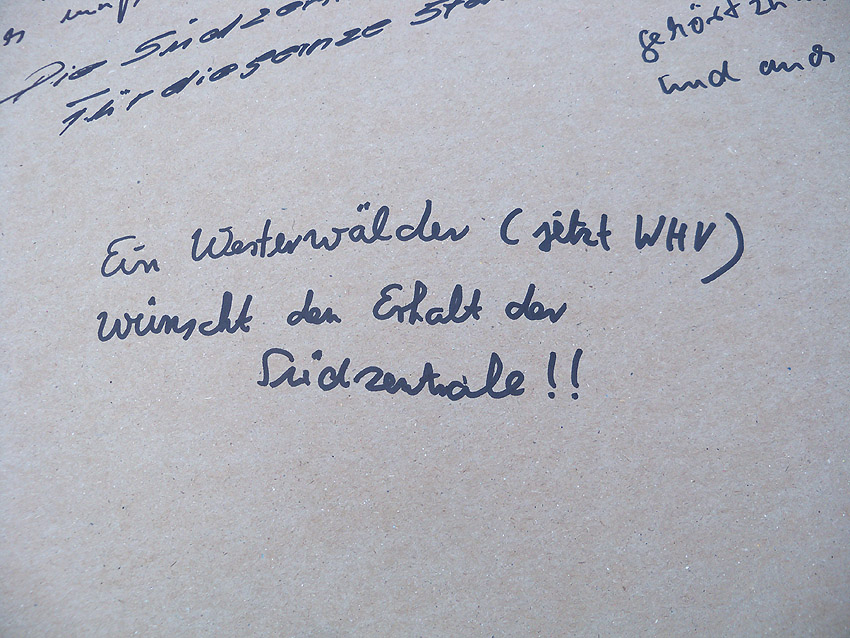 Die Südzen
Für die ganze Sta
gehört zu
und auch
Ein Westerwälder (jetzt WHV)
wünscht den Erhalt der
Südzentrale!!